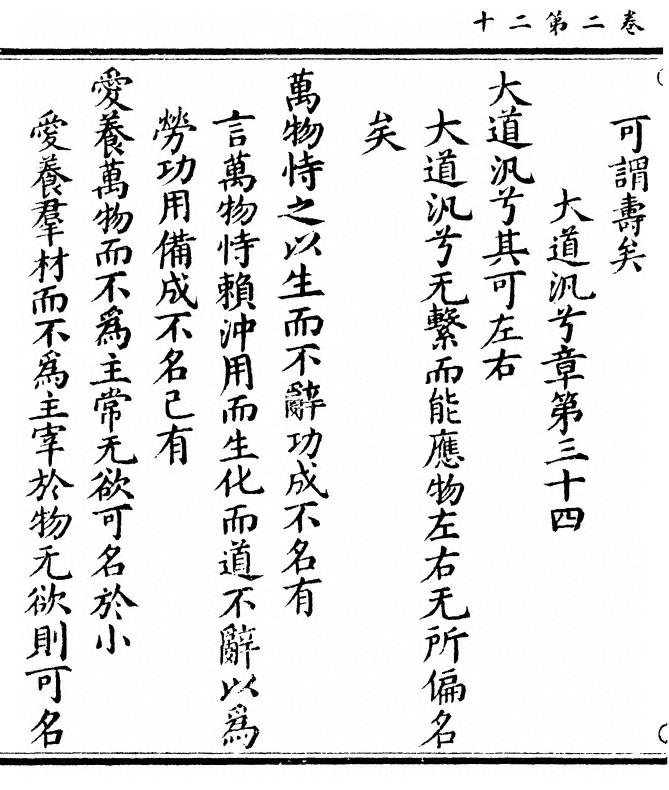 卷二第二十
可謂壽矣
大道汎兮章第三十四
大道汎兮其可左右
大道汎兮无繫而能應物左右无所偏名
矣
萬物恃之以生而不辭功成不名有
言萬物恃賴沖用而生化而道不辭以爲
勞功用備成不名己有
愛養萬物而不爲主常无欲可名於小
愛養羣材而不爲主宰於物无欲則可名